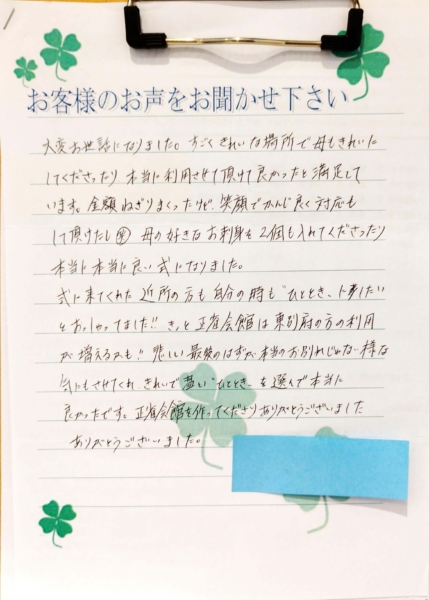 お客様のお声をお聞かせ下さい
大変お世話になりました。すごくきれいな場所で母もきれいに
してくださったり 本当に利用させて頂けて良かったと満足して
います。金額ねぎりまくったけど、笑顔でかんじ良く対応も
して頂けたし 母の好きなお刺身を2個も入れてくださったり
本当に本当に良い式になりました。
式に来てくれた近所の方も自分の時も"ひととき"に事したい
とおっしゃってました!! きっと正省会館は東別府の方の利用
が増えるかも!! 悲しい最後のはずが本当のお別れじゃない様な
気にもさせてくれ きれいで "ひととき"を選んで本当に
良かったです。正省会館を作ってくださりありがとうございました
ありがとうございました。